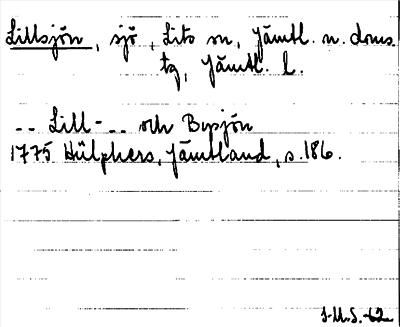 Lillsjön, sjö, Lits sn, Jämtl. n. doms.
tg, Jämtl. l.
-- Lill- -- och Bysjön
1775 Hülphers, Jämtland, s. 186.
J.M.S. -62